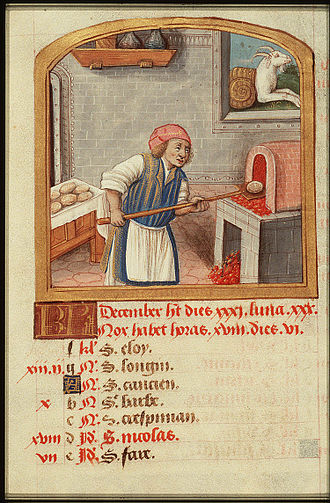 KL December ht dies xxxi. luna. xxx.
Nox habet horas. xviii. dies. vi.
f kl S. eloy.
xiii. ii. g N. S. longin.
A N. S. cancien.
x b N. S. barbe.
c N. S. crespinian.
xviii d Id. S. nicolas.
vii e Id. S. fare.